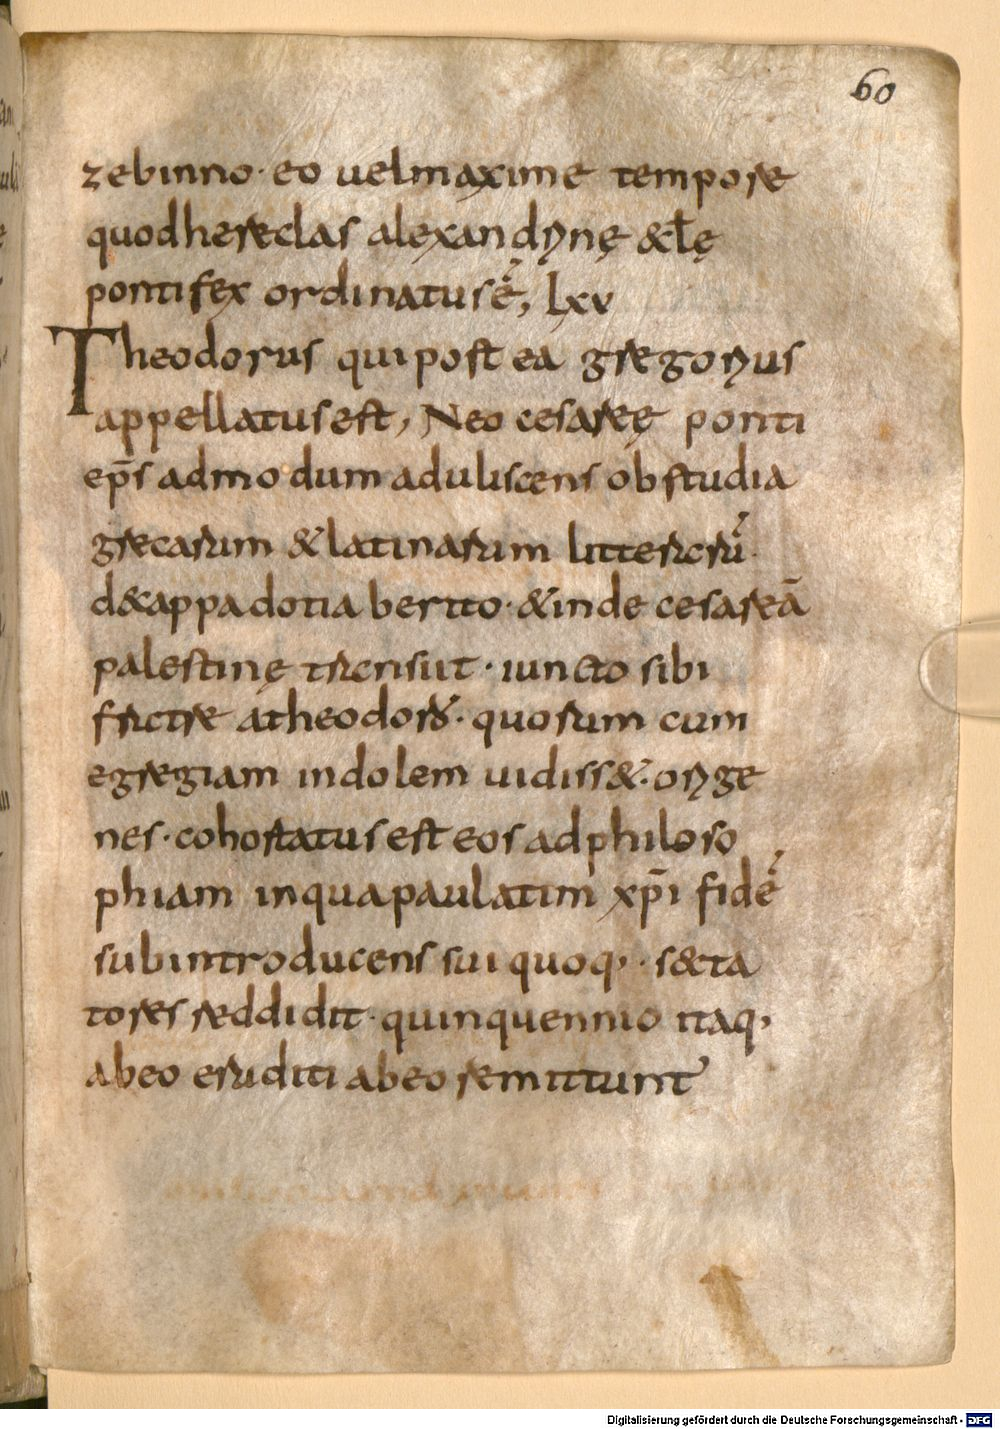 60
zebinno· eo uelmaxime tempore
quodhereclas alexandrinę &cłę
pontifex ordinatus ē, lxv
Theodorus qui post ea gregorius
appellatus est, Neo cesareę ponti
ep̄s admodum aduliscens ob studia
grecarum & latinarum litterarū·
d&cappadotia beritto· & inde cesareā
palestinę transiit· iuncto sibi
fratre atheodoro· quorum cum
egregiam indolem uidiss&· orige
nes· cohostatus est eos ad philoso
phiam in qua paulatim xp̄i fidē
subintroducens sui quoq,· s&cta
tores reddidit· quinquennio itaq,
abeo eruditi abeo remittunt
Digitalisierung gefördert durch die Deutsche Forschungsgemeinschaft - DFG